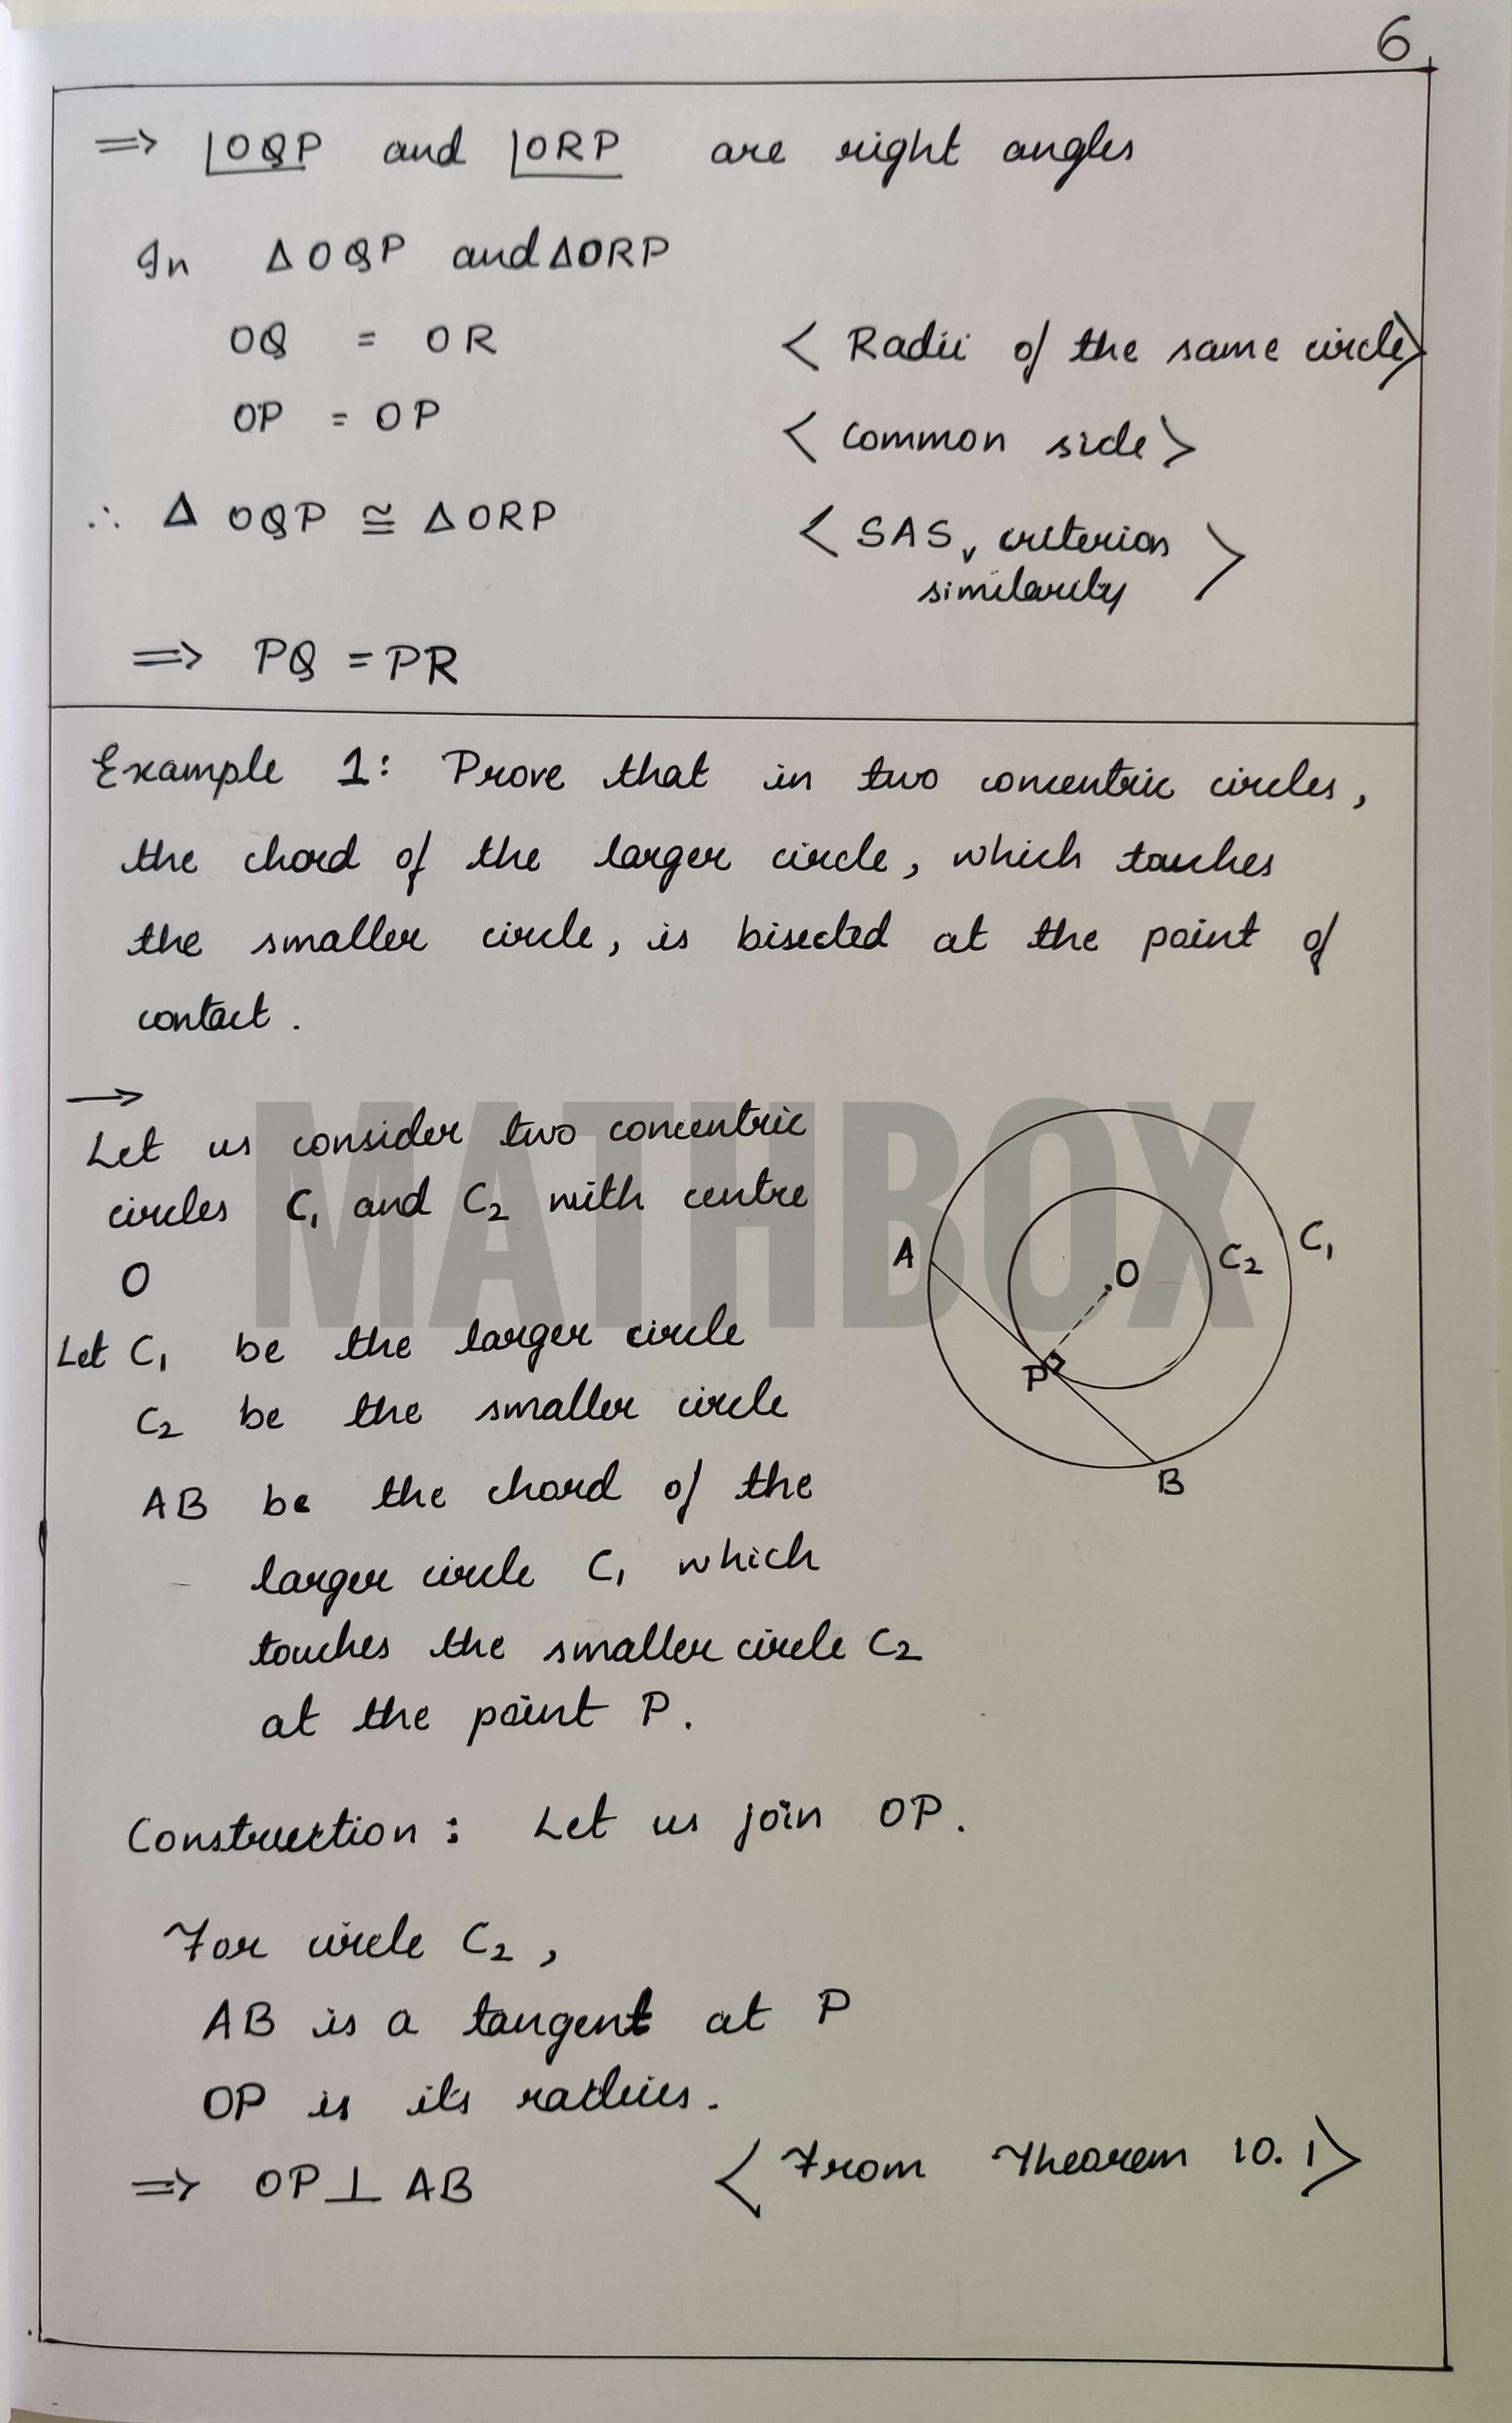 6
⇒ ∠OQP and ∠ORP are right angles
In ΔOQP and ΔORP
OQ = OR < Radii of the same circle>
OP = OP < common side>
∴ Δ OQP ≅ ΔORP < SAS criterion
similarity >
⇒ PQ = PR
Example 1: Prove that in two concentric circles,
the chord of the larger circle, which touches
the smaller circle, is bisected at the point of
contact.
→
Let us consider two concentric
circles C₁ and C₂ with centre
O
Let C₁ be the larger circle
C₂ be the smaller circle
AB be the chord of the
larger circle C₁ which
touches the smaller circle C₂
at the point P.
A
O
C₂
C₁
P
B
MATHBOX
Construction: Let us join OP.
For circle C₂,
AB is a tangent at P
OP is its radius.
⇒ OP ⊥ AB < From Theorem 10.1>